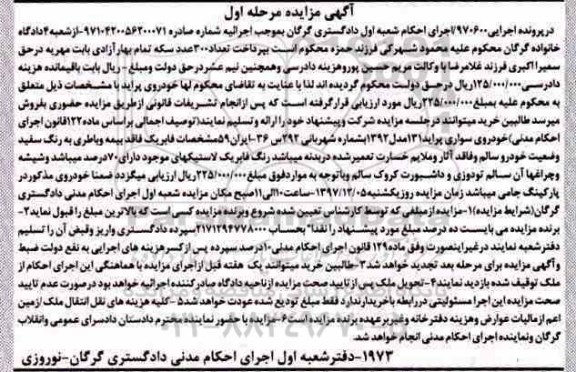 آگهی مزایده مرحله اول
در پرونده اجرایی ۹۷۰۶۰۰/اجرای احکام شعبه اول دادگستری گرگان بموجب اجرائیه شماره صادره ۹۷۱۰۴۲۰۰۵۶۲۰۰۰۷۱-از شعبه ۴ دادگاه
خانواده گرگان محکوم علیه محمود شهرکی فرزند حمزه محکوم است بپرداخت تعداد ۳۰۰ عدد سکه تمام بهار آزادی بابت مهریه در حق
سمیرا اکبری فرزند غلامرضا با وکالت مریم حسن پور وهزینه دادرسی وهمچنین نیم عشر در حق دولت ومبلغ - ریال بابت باقیمانده هزینه
دادرسی ۱۲۵/۰۰۰/۰۰۰ ریال در حق دولت محکوم گردیده اند لذا با عنایت به تقاضای محکوم لها خودروی پراید با مشخصات ذیل متعلق
به محکوم علیه به مبلغ ۲۲۵/۰۰۰/۰۰۰ ریال مورد ارزیابی قرار گرفته است که پس از انجام تشریفات قانونی از طریق مزایده حضوری بفروش
میرسد طالبین خرید میتوانند در جلسه مزایده شرکت وپیشنهاد خود را ارائه وتسلیم نمایند(توصیف اجمالی بر اساس ماده ۱۲۲ قانون اجرای
احکام مدنی)خودروی سواری پراید ۱۳۱ مدل ۱۳۹۲ بشماره شهربانی ۲۹۲ س ۳۶-ایران ۵۹ مشخصات فابریک فاقد بیمه وباطری به رنگ سفید
وضعیت خودرو سالم وفاقد آثار وملایم خسارت تعمیر شده در بدنه میباشد رنگ فابریک لاستیکهای موجود دارای ۷۰ درصد میباشد وشیشه
وچراغها آن سالم تودوزی و داشبورت کروک سالم وباتوجه به موارد فوق مبلغ ۲۲۵/۰۰۰/۰۰۰ ریال ارزیابی میگردد ضمنا خودروی مذکور در
پارکینگ جامی میباشد زمان مزایده روز یکشنبه ۱۳۹۷/۱۲/۰۵-ساعت ۱۰ الی ۱۱ صبح مکان مزایده شعبه اول اجرای احکام مدنی دادگستری
گرگان(شرایط مزایده)۱-مزایده از مبلغی که توسط کارشناس تعیین شده شروع وبرنده مزایده کسی است که بالاترین مبلغ را قبول نماید ۲-
برنده مزایده می بایست ده درصد مبلغ مورد پیشنهاد را نقدا بحساب ۲۱۷۱۲۹۴۷۷۸۰۰۰ سپرده دادگستری واریز وقبض آن را تسلیم
دفتر شعبه نمایند در غیراینصورت وفق ماده ۱۲۹ قانون اجرای احکام مدنی ۱۰ درصد سپرده پس از کسر هزینه های اجرایی به نفع دولت ضبط
و آگهی مزایده برای مرحله بعد تجدید خواهد شد ۳-طالبین خرید میتوانند یک هفته قبل از اجرای مزایده با هماهنگی این اجرای احکام از
ملک توقیف شده بازدید نمایند ۴-تحویل ملک پس از تایید صحت مزایده از ناحیه دادگاه صادر کننده اجرائیه خواهد بود در صورت عدم تایید
صحت مزایده این اجرا مسئولیتی در رابطه با خریدار ندارد فقط مبلغ تودیع شده عودت خواهد شد ۵-کلیه هزینه های نقل انتقال ملک از مین
اعم از مالیات عوارض وهزینه دفتر خانه وغیر بر عهده برنده مزایده است ۶-مزایده با حضور نماینده محترم دادستان دادسرای عمومی وانقلاب
گرگان ونماینده اجرای احکام مدنی انجام خواهد شد.
۱۹۷۳-دفتر شعبه اول اجرای احکام مدنی دادگستری گرگان-نوروزی